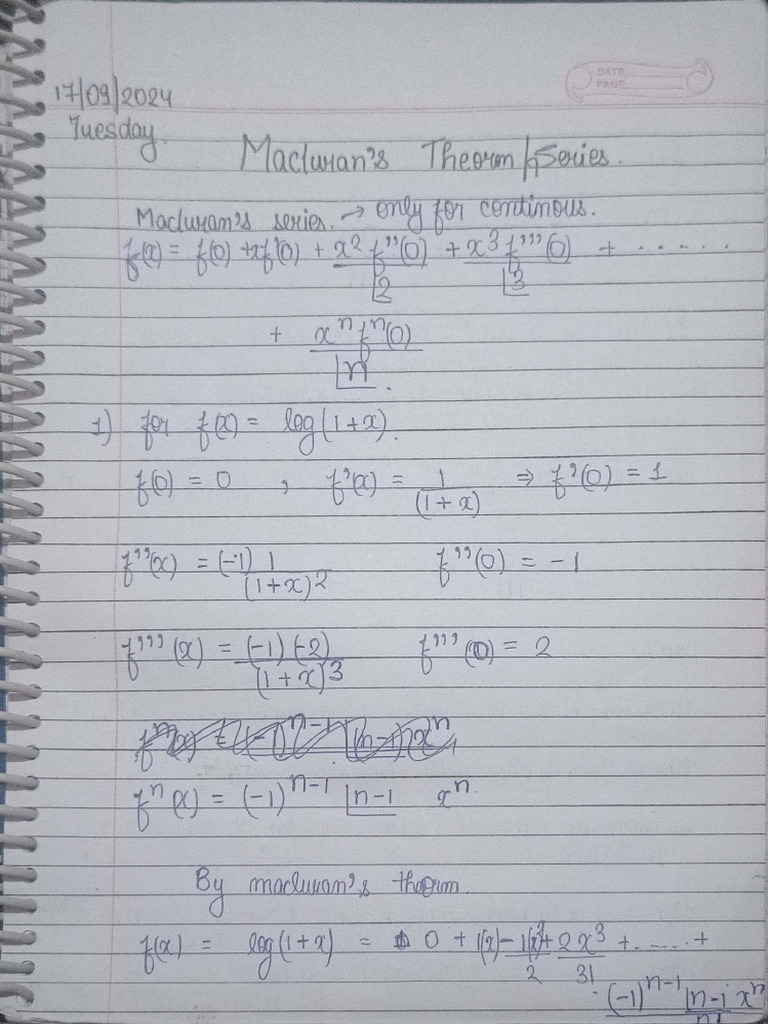 DATE
PAGE
17/09/2024
Tuesday.
Macluran's Theorm/Series.
Macluran's series. → only for continous.
f(x) = f(0) + xf'(0) + x² f''(0)/⌊2 + x³ f'''(0)/⌊3 + ......
+ xⁿ fⁿ(0)/⌊n .
1) for f(x) = log(1+x).
f(0) = 0 , f'(x) = 1/(1+x) ⇒ f'(0) = 1
f''(x) = (-1) 1/(1+x)² f''(0) = -1
f'''(x) = (-1)(-2)/(1+x)³ f'''(0) = 2
fⁿ(x) = (-1)ⁿ⁻¹ ⌊n-1 xⁿ
fⁿ(x) = (-1)ⁿ⁻¹ ⌊n-1 xⁿ.
By macluran's theorm.
f(x) = log(1+x) = 0 + 1(x) - 1(x)²/2 + 2x³/3! + ...... +
(-1)ⁿ⁻¹ ⌊n-1 xⁿ/n!